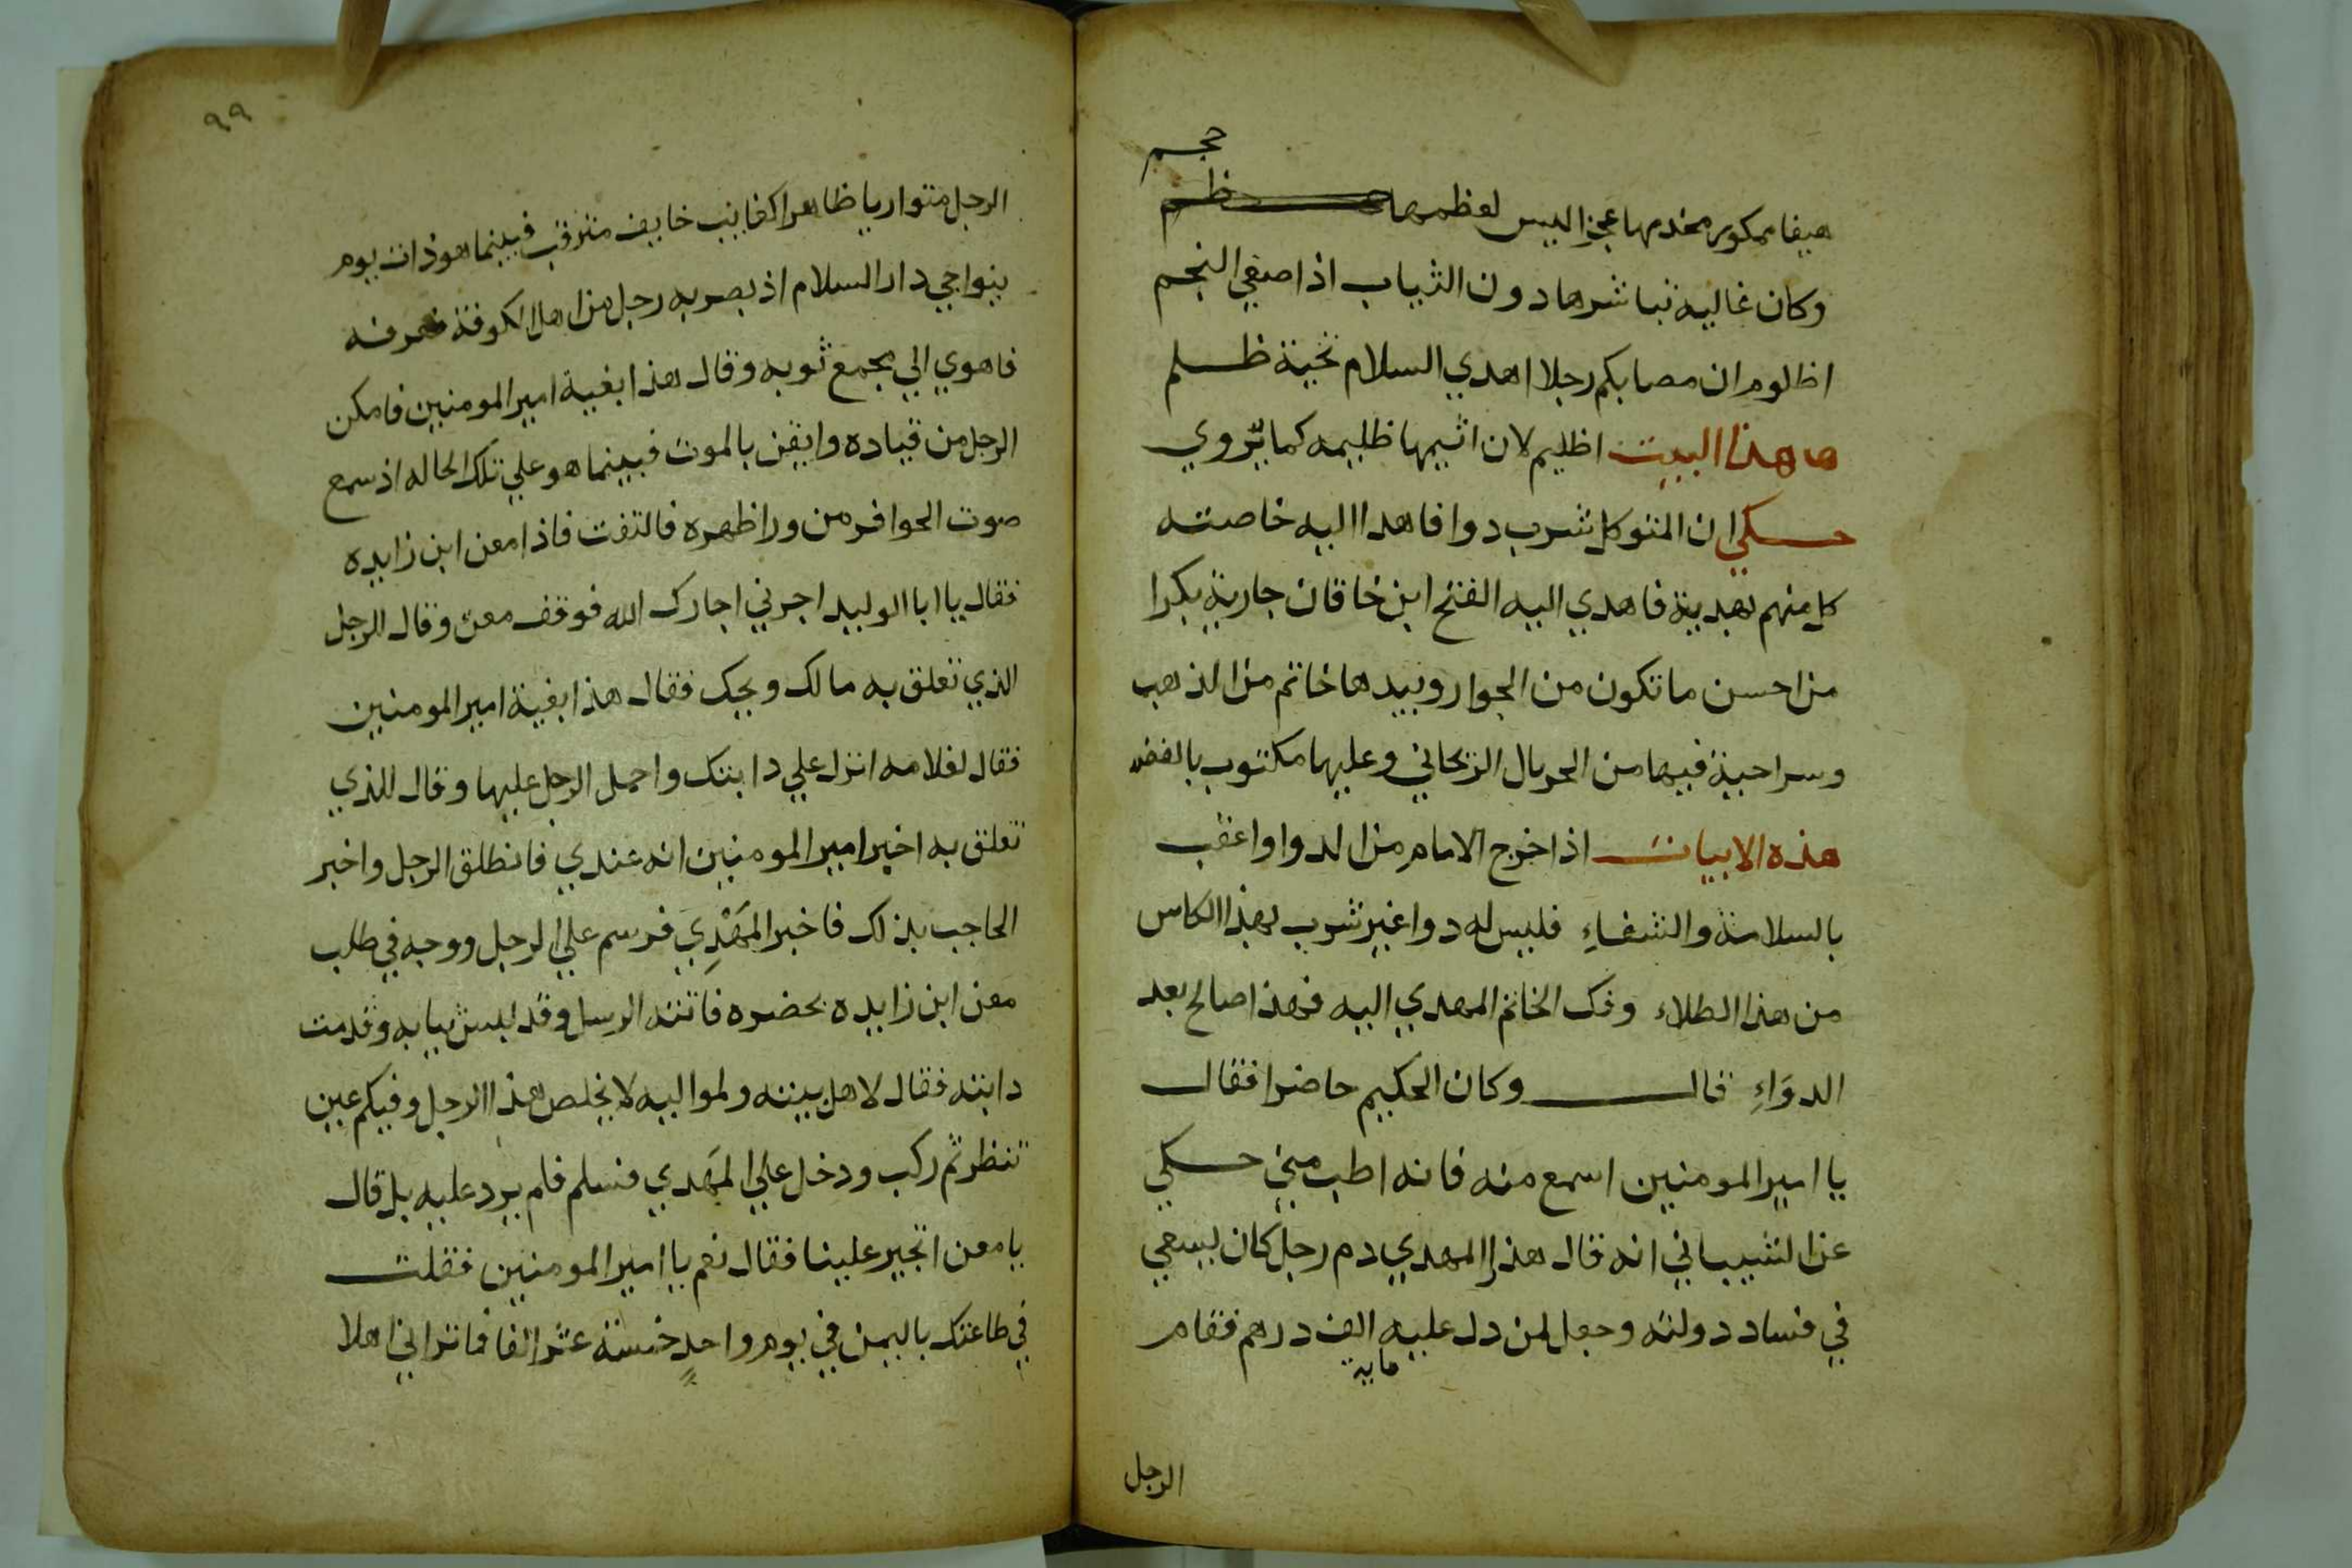 حجم
هيفا ممكوره مخدمها عجزا ليس لعظمها
وكان غاليه تباشرها دون الثياب اذا صفي النجم
اظلوم ان مصابكم رجلا اهدي السلام تحية ظلم
هذا البيت اظليم لان اثيمها ظليمه كما يروي
حكي ان المتوكل شرب دوا فاهدا اليه خاصته
كل منهم بهدية فاهدي اليه الفتح ابن خاقان جارية بكرا
من احسن ما تكون من الجوار وبيدها خاتم من الذهب
وسراحية فيها من الجريال الزنحاني وعليها مكتوب بالفضه
هذه الابيات اذا خرج الامام من الدوا واعقب
بالسلامة والشفاءِ فليس له دوا غير شرب بهذا الكاس
من هذا الطلاء وفك الخاتم المهدي اليه فهذا صالح بعد
الدوَاءِ قال وكان الحكيم حاضرا فقال
يا امير المومنين اسمع منه فانه اطب مني حكي
عن الشيباني انه قال هذا المهدي دم رجل كان يسعي
في فساد دولته وجعل لمن دل عليه الف درهم فقام
مايه
الرجل
٩٩
الرجل متواريا ظاهرا كغايب خايف مترقب فبينما هو ذات يوم
بنواحي دار السلام اذ بصر به رجل من اهل الكوفة فعرفه
فاهوي الي مجمع ثوبه وقال هذا بغية امير المومنين فامكن
الرجل من قياده وايقن بالموت فبينما هو علي تلك الحاله اذ سمع
صوت الحوافر من ورا ظهره فالتفت فاذا معن ابن زايده
فقال يا ابا الوليد اجرني اجارك الله فوقف معن وقال الرجل
الذي تعلق به مالك ويحك فقال هذا بغية امير المومنين
فقال لغلامه انزل علي دابتك واحمل الرجل عليها وقال للذي
تعلق به اخبر امير المومنين انه عندي فانطلق الرجل واخبر
الحاجب بذلك فاخبر المَهْدِي فرسم علي الرجل ووجه في طلب
معن ابن زايده بحضره فاتته الرسل وقد لبس ثيابه وقدمت
دابته فقال لاهل بيته ولمواليه لا يخلص هذا الرجل وفيكم عين
تنظر ثم ركب ودخل علي المهَدي فسلم فلم يرد عليه بل قال
يا معن اتجير علينا فقال نعم يا امير المومنين فقلت
في طاعتك باليمن في يوم واحدٍ خمسة عشر الفا فما تراني اهلا